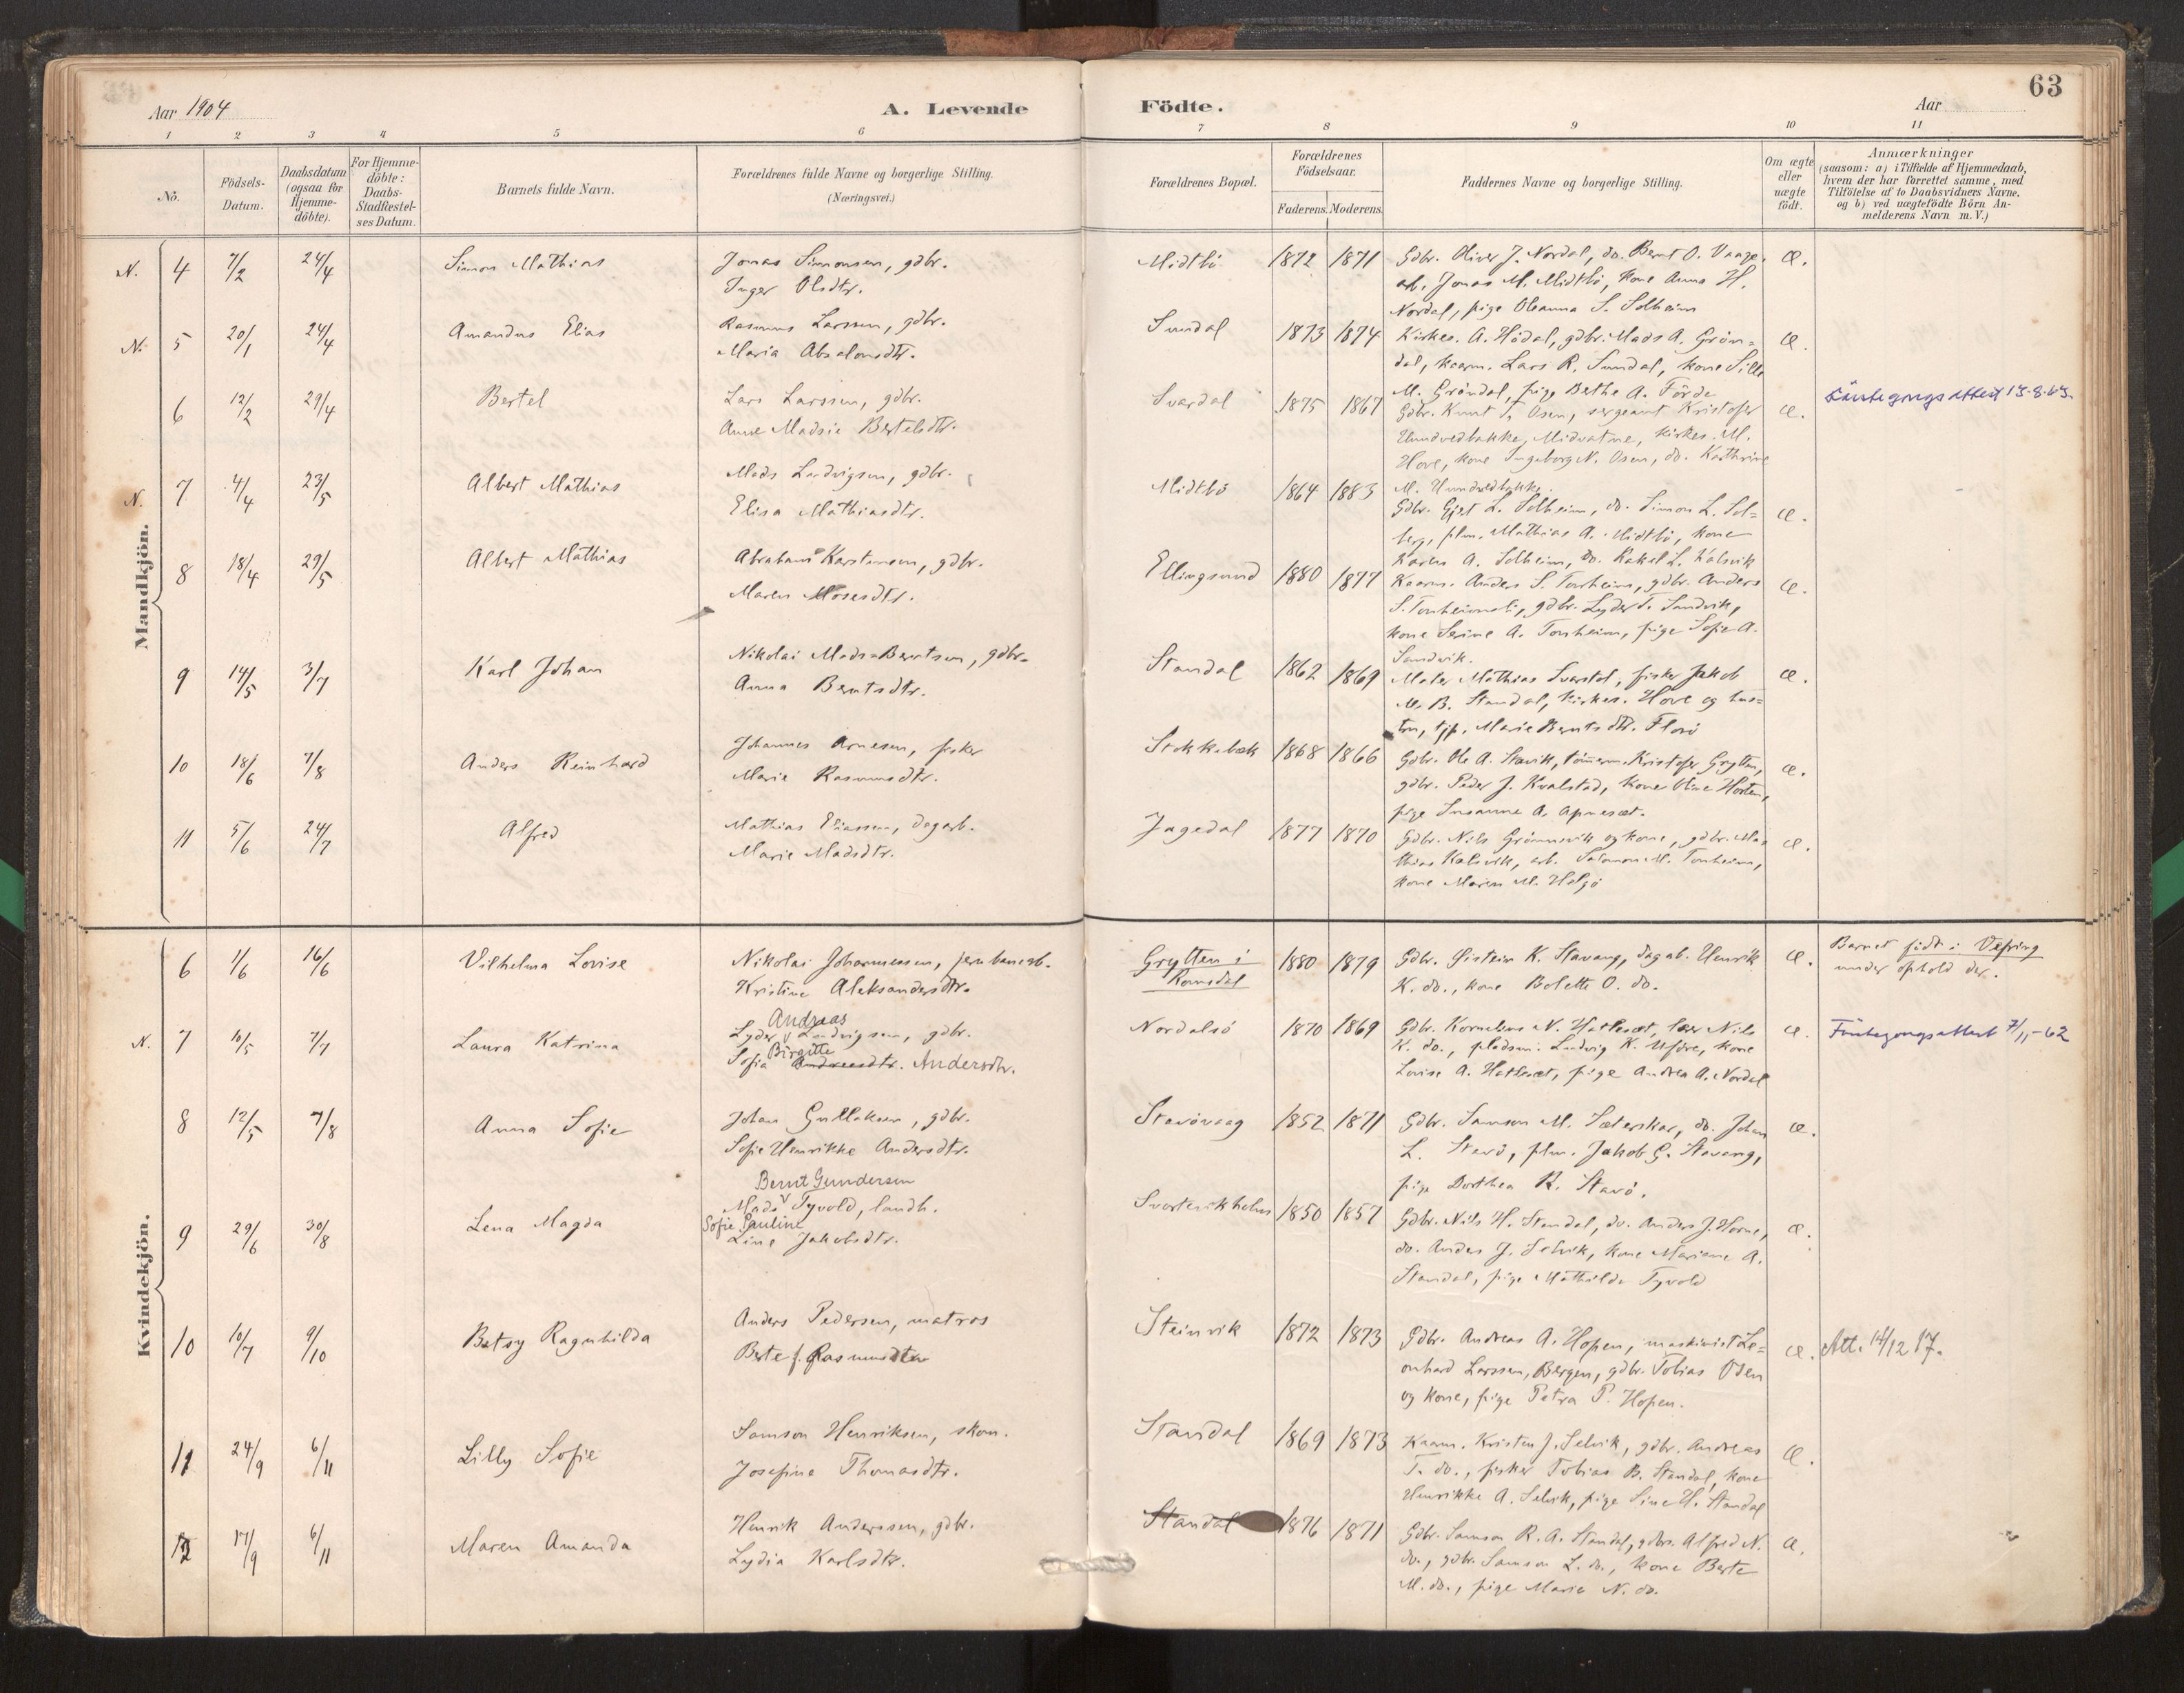 63
Aar 1904
A. Levende
Födte.
Aar
1 2 3 4 5 6 7 8 9 10 11
No.
Födsels-Datum.
Daabsdatum (ogsaa for Hjemme-döbte).
For Hjemme-döbte: Daabs-Stadfæstel-ses Datum.
Barnets fulde Navn.
Forældrenes fulde Navne og borgerlige Stilling.
(Næringsvei.)
Forældrenes Bopæl.
Forældrenes Födselsaar.
Faderens. Moderens.
Faddernes Navne og borgerlige Stilling.
Om ægte eller uægte födt.
Anmærkninger
(saasom: a) i Tilfælde af Hjemmedaab,
hvem der har forrettet samme, med
Tilföielse af to Daabsvidners Navne,
og b) ved uægtefödte Börn An-
melderens Navn m. V.)
Mandkjön.
N. 4 7/2 24/4 Simon Mathias Jonas Simonsen, gdbr. Midtbö 1872 1871 Gdbr. Oliver J. Nordal, do. Bernt O. Vaage, Æ.
Inger Olsdtr. arb. Jonas M. Midtbö, kone Anna H.
Nordal, pige Oleanna S. Solheim
N. 5 20/1 24/4 Amandus Elias Rasmus Larsen, gdbr. Sundal 1873 1874 Kirkes. A. Hödal, gdbr. Mads A. Grön= Æ.
Maria Absalonsdtr. dal, kaarm. Lars R. Sundal, kone Sille
M. Gröndal, pige Bethe A. Förde
6 12/2 29/4 Bertel Lars Larssen, gdbr. Svardal 1875 1867 Gdbr. Knut T. Osen, sergeant Kristofer Æ.
Anne Madsie Bertelsdtr. Hundvedbakke, Midvatne, kirkes. M.
Hove, kone Ingeborg N. Osen, do. Kathrine
M. Hundvedbakke.
N. 7 4/4 23/5 Albert Mathias Mads Ludvigsen, gdbr. Midtbö 1864 1883 Gdbr. Gjert L. Solheim, do. Simon L. Sol= Æ.
Elisa Mathiasdtr. berg, plm. Mathias A. Midtbö, kone
Karen A. Solheim, do. Rakel L. Kalsvik
8 18/4 29/5 Albert Mathias Abraham Karstensen, gdbr. Ellingsund 1880 1877 Kaarm. Anders S. Tonheim, gdbr. Anders Æ.
Maren Mosesdtr. S. Tonheimsli, gdbr. Lyder T. Sandvik,
kone Serine A. Tonheim, pige Sofie A.
Sandvik.
9 14/5 3/7 Karl Johan Nikolai Mads=Berntsen, gdbr. Standal 1862 1869 Maler Mathias Svardal, fisker Jakob Æ.
Anna Berntsdtr. M. B. Standal, kirkes. Hove og hus=
tru, tjp. Marie Berntsdtr. Florö
10 18/6 7/8 Anders Reinhard Johannes Arnesen, fisker Stokkebæk 1868 1866 Gdbr. Ole A. Stavik, tömerm. Kristofer Grytten, Æ.
Marie Rasmusdtr. gdbr. Peder J. Kvalstad, kone Oline Horten,
pige Susanne A. Apneset.
11 5/6 24/7 Alfred Mathias Eliassen, dagarb. Jagedal 1877 1870 Gdbr. Nils Grönnevik og kone, gdbr. Ma= Æ.
Marie Madsdtr. thias Kalsvik, arb. Salomon M. Tonheim,
kone Maren M. Helgö
Kvindekjön.
6 1/6 16/6 Vilhelma Lovise Nikolai Johannessen, jernbanearb. Grytten i Romsdal 1880 1879 Gdbr. Eistein K. Stavang, dagab. Henrik Æ. Barnet födt i Vefring
Kristine Aleksandersdtr. K. do., kone Bolette O. do. under ophold der.
N. 7 10/5 7/7 Laura Katrina Lyder Andreas Ludvigsen, gdbr. Nordalsö 1870 1869 Gdbr. Kornelius N. Hatleset, lær Nils Æ. 7/11-62
Sofia Birgitte Andreasdtr. Andersdtr. K. do., pladsm. Ludvig K. Ufore, kone
Lovise A. Hatleset, pige Andrea A. Nordal
8 12/5 7/8 Anna Sofie Johan Gullaksen, gdbr. Stavövaag 1852 1871 Gdbr. Samson M. Sæterskar, do. Johan Æ.
Sofie Henrikke Andersdtr. L. Stavö, plm. Jakob G. Stavang,
pige Dorthea R. Stavö.
9 29/6 30/8 Lena Magda Mads Bernt Gundersen Tyvold, landh. Svartevikholm 1850 1857 Gdbr. Nils H. Standal, do. Anders J. Horne, Æ.
Sofie Pauline Line Jakobsdtr. do. Anders J. Selvik, kone Mariane A.
Standal, pige Mathilde Tyvold
10 10/7 9/10 Betsy Ragnhilda Anders Pedersen, matros Steinvik 1872 1873 Gdbr. Andreas A. Hopen, maskinist Le= Æ. Att. 14/12 17.
Berte J. Rasmusdtr onhard Larssen, Bergen, gdbr. Tobias Osen
og kone, pige Petra P. Hopen.
11 24/9 6/11 Lilly Sofie Samson Henriksen, skom. Standal 1869 1873 Kaarm. Kristen J. Selvik, gdbr. Andreas Æ.
Josefine Thomasdtr. T. do., fisker Tobias B. Standal, kone
Henrikke A. Selvik, pige Sine H. Standal
12 17/9 6/11 Maren Amanda Henrik Anderssen, gdbr. Standal 1876 1871 Gdbr. Samson R. A. Standal, gdbr. Alfred N. Æ.
Lydia Karlsdtr. do., gdbr. Samson L. do., kone Berte
M. do., pige Marie N. do.